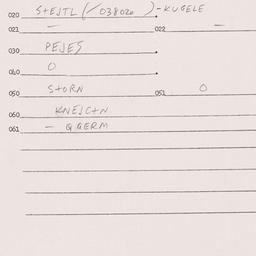 020 STEJTL (/038020) - KUGELE
021 — 022 —
030 PEJES
040 O
050 STORN 051 O
060 KNEJCTN
061 — QGERM